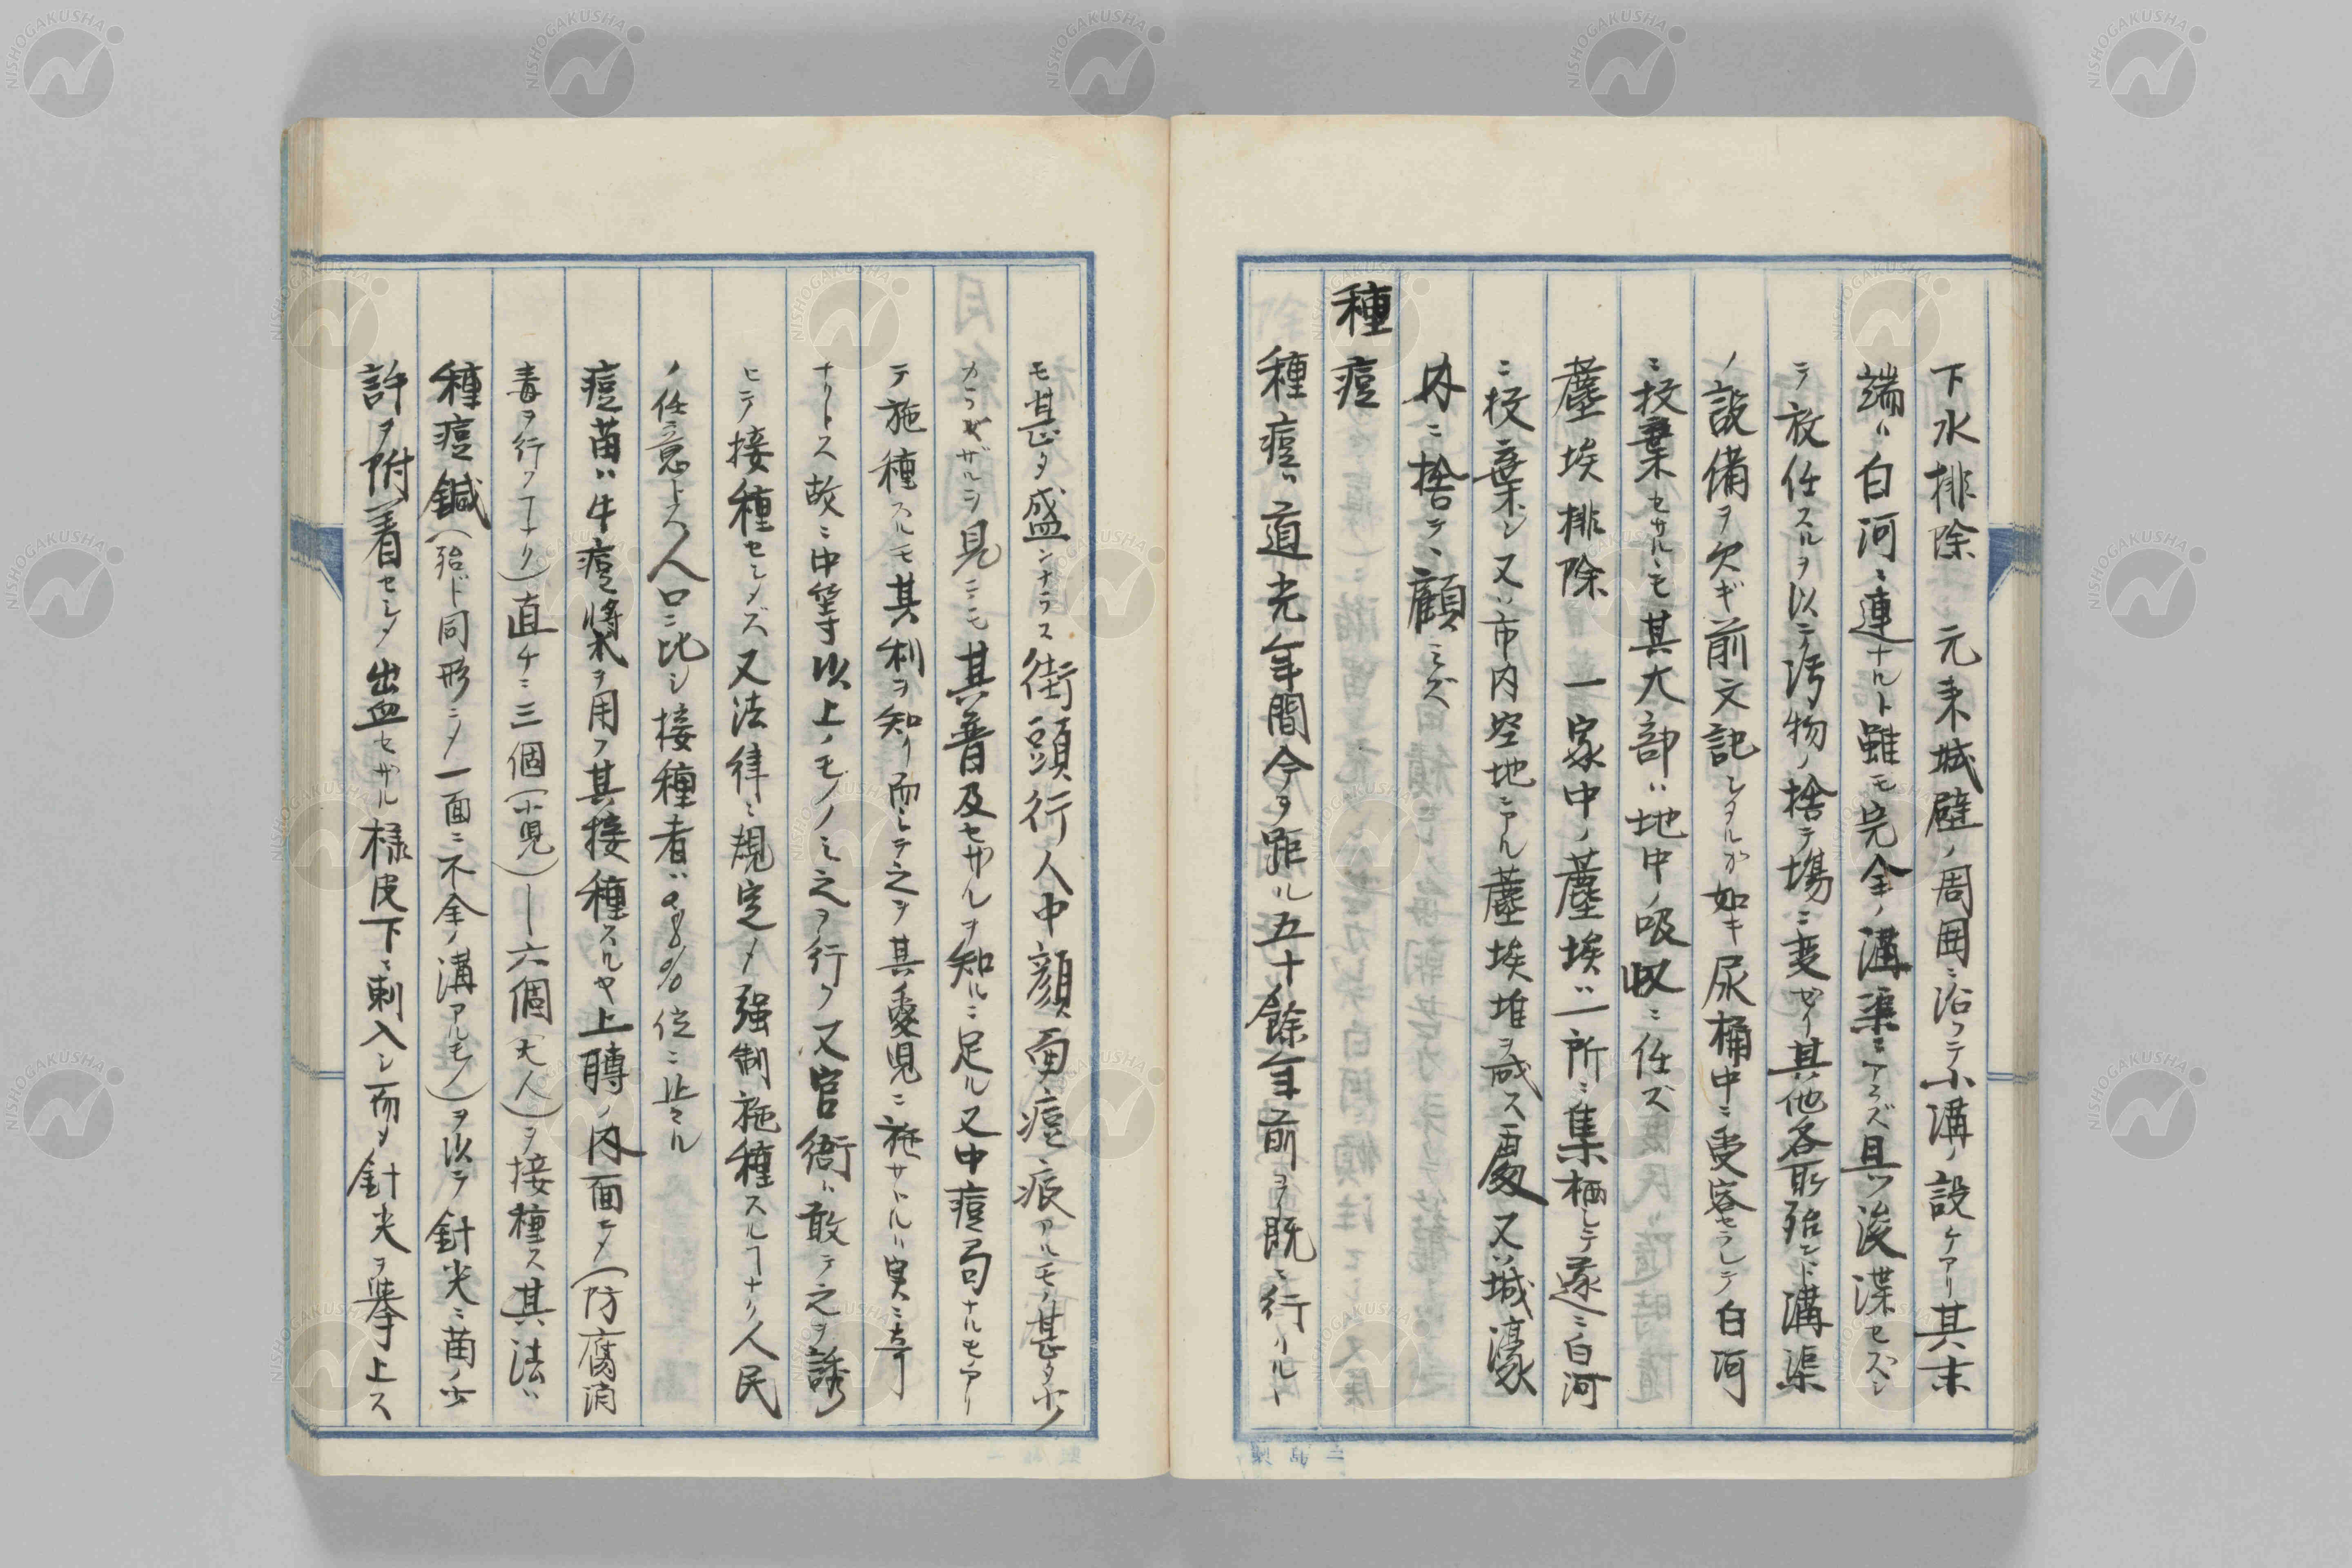 下水排除 元来城壁ノ周囲ニ沿フテ小溝ノ設ケアリ其末
端ハ白河ニ連ナルト雖モ完全ノ溝渠ニアラズ且ツ浚渫セズシ
テ放任スルヲ以テ汚物ノ捨テ場ニ変ゼリ其他各所殆ンド溝渠
ノ設備ヲ欠ギ前文記シタルカ如キ尿桶中ニ受容セラレテ白河
ニ投棄セサルモ其大部ハ地中ノ吸収ニ任ズ
塵埃排除 一家中ノ塵埃ハ一所ニ集栖シテ遂ニ白河
ニ投棄シ又ハ市内空地ニアル塵埃堆ヲ成ス處又ハ城濠
内ニ捨テヽ顧ミズ
種痘
種痘ハ道光年間今ヲ距ル五十餘年前ヨリ既ニ行ハルト
モ甚タ盛ンナラス街頭行人中顔面ノ痘痕アルモノ甚タ少ノ
カラザルヲ見ニモ其普及セザルヲ知ルニ足ル又中痘局ナルモノアリ
テ施種スルモ其利ヲ知リ而シテ之ヲ其愛児ニ施サヽルハ実ニ奇
ナリトス故ニ中等以上ノモノノミ之ヲ行ク又官衙ハ敢テ之ヲ誘
ヒテ接種セシメズ又法律ニ規定メ强制施種スルヿナリ人民
ノ任意トス人口ニ比シ接種者ハ 位ニ止マル
痘苗ハ牛痘漿ヲ用フ其接種スルヤ上膊ノ内面ニメ(防腐消
毒ヲ行フヿナリ)直チニ三個(小児)—六個(大人)ヲ接種ス其法ハ
種痘鍼(殆ド同形ニメ一面ニ不全ノ溝アルモノ)ヲ以テ針尖ニ苗ノ少
許ヲ附着セシメ出血セザル様皮下ニ刺入シ而メ針尖ヲ挙上ス
NISHOGAKUSHA